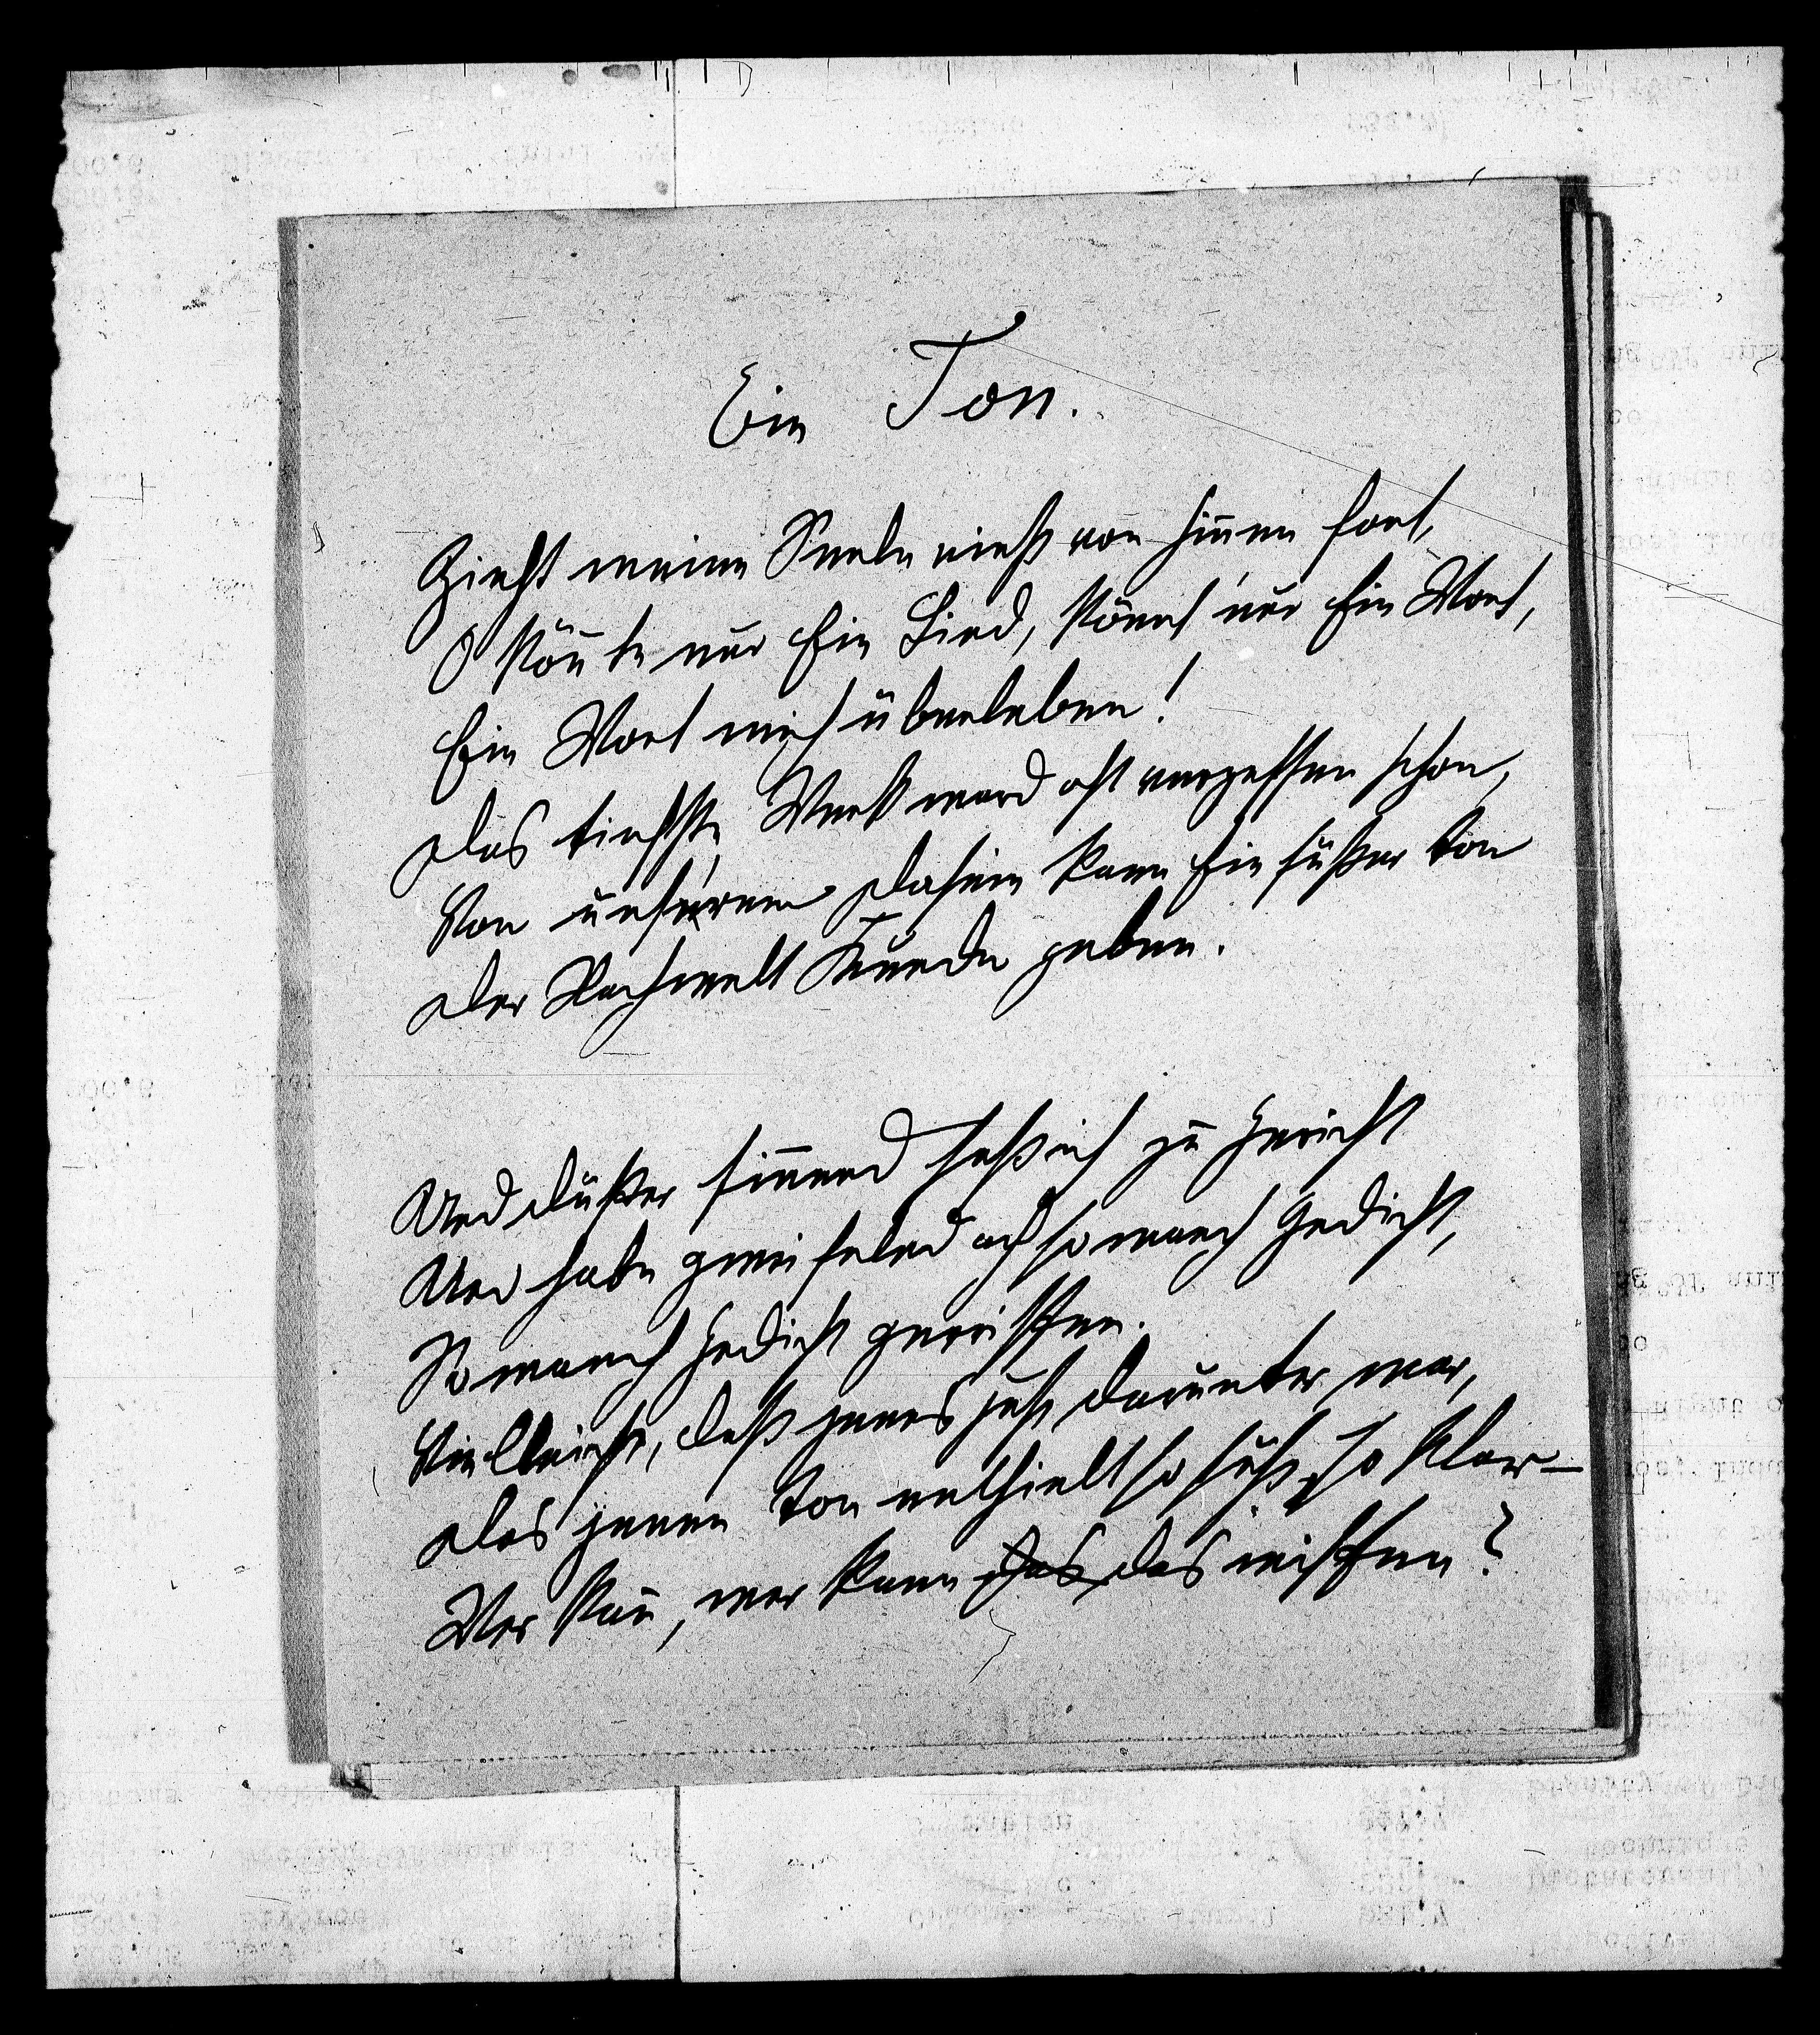 Ein Ton.
Zieht meine Seele einst von hinnen fort,
O könnte nur Ein Lied, könnt' nur Ein Wort,
Ein Wort mich überleben!
Das tiefste Werk ward oft vergessen schon,
Von unserem Dasein kann Ein süßer Ton
Der Nachwelt Kunde geben.
Und düster sinnend saß ich zu Gericht
Und habe zweifelnd ach so manch Gedicht,
So manch Gedicht zerrissen.
Vielleicht, daß jenes just darunter war,
Das jenen Ton enthielt so süß, so klar –
Wer kann, wer kann das das wissen?